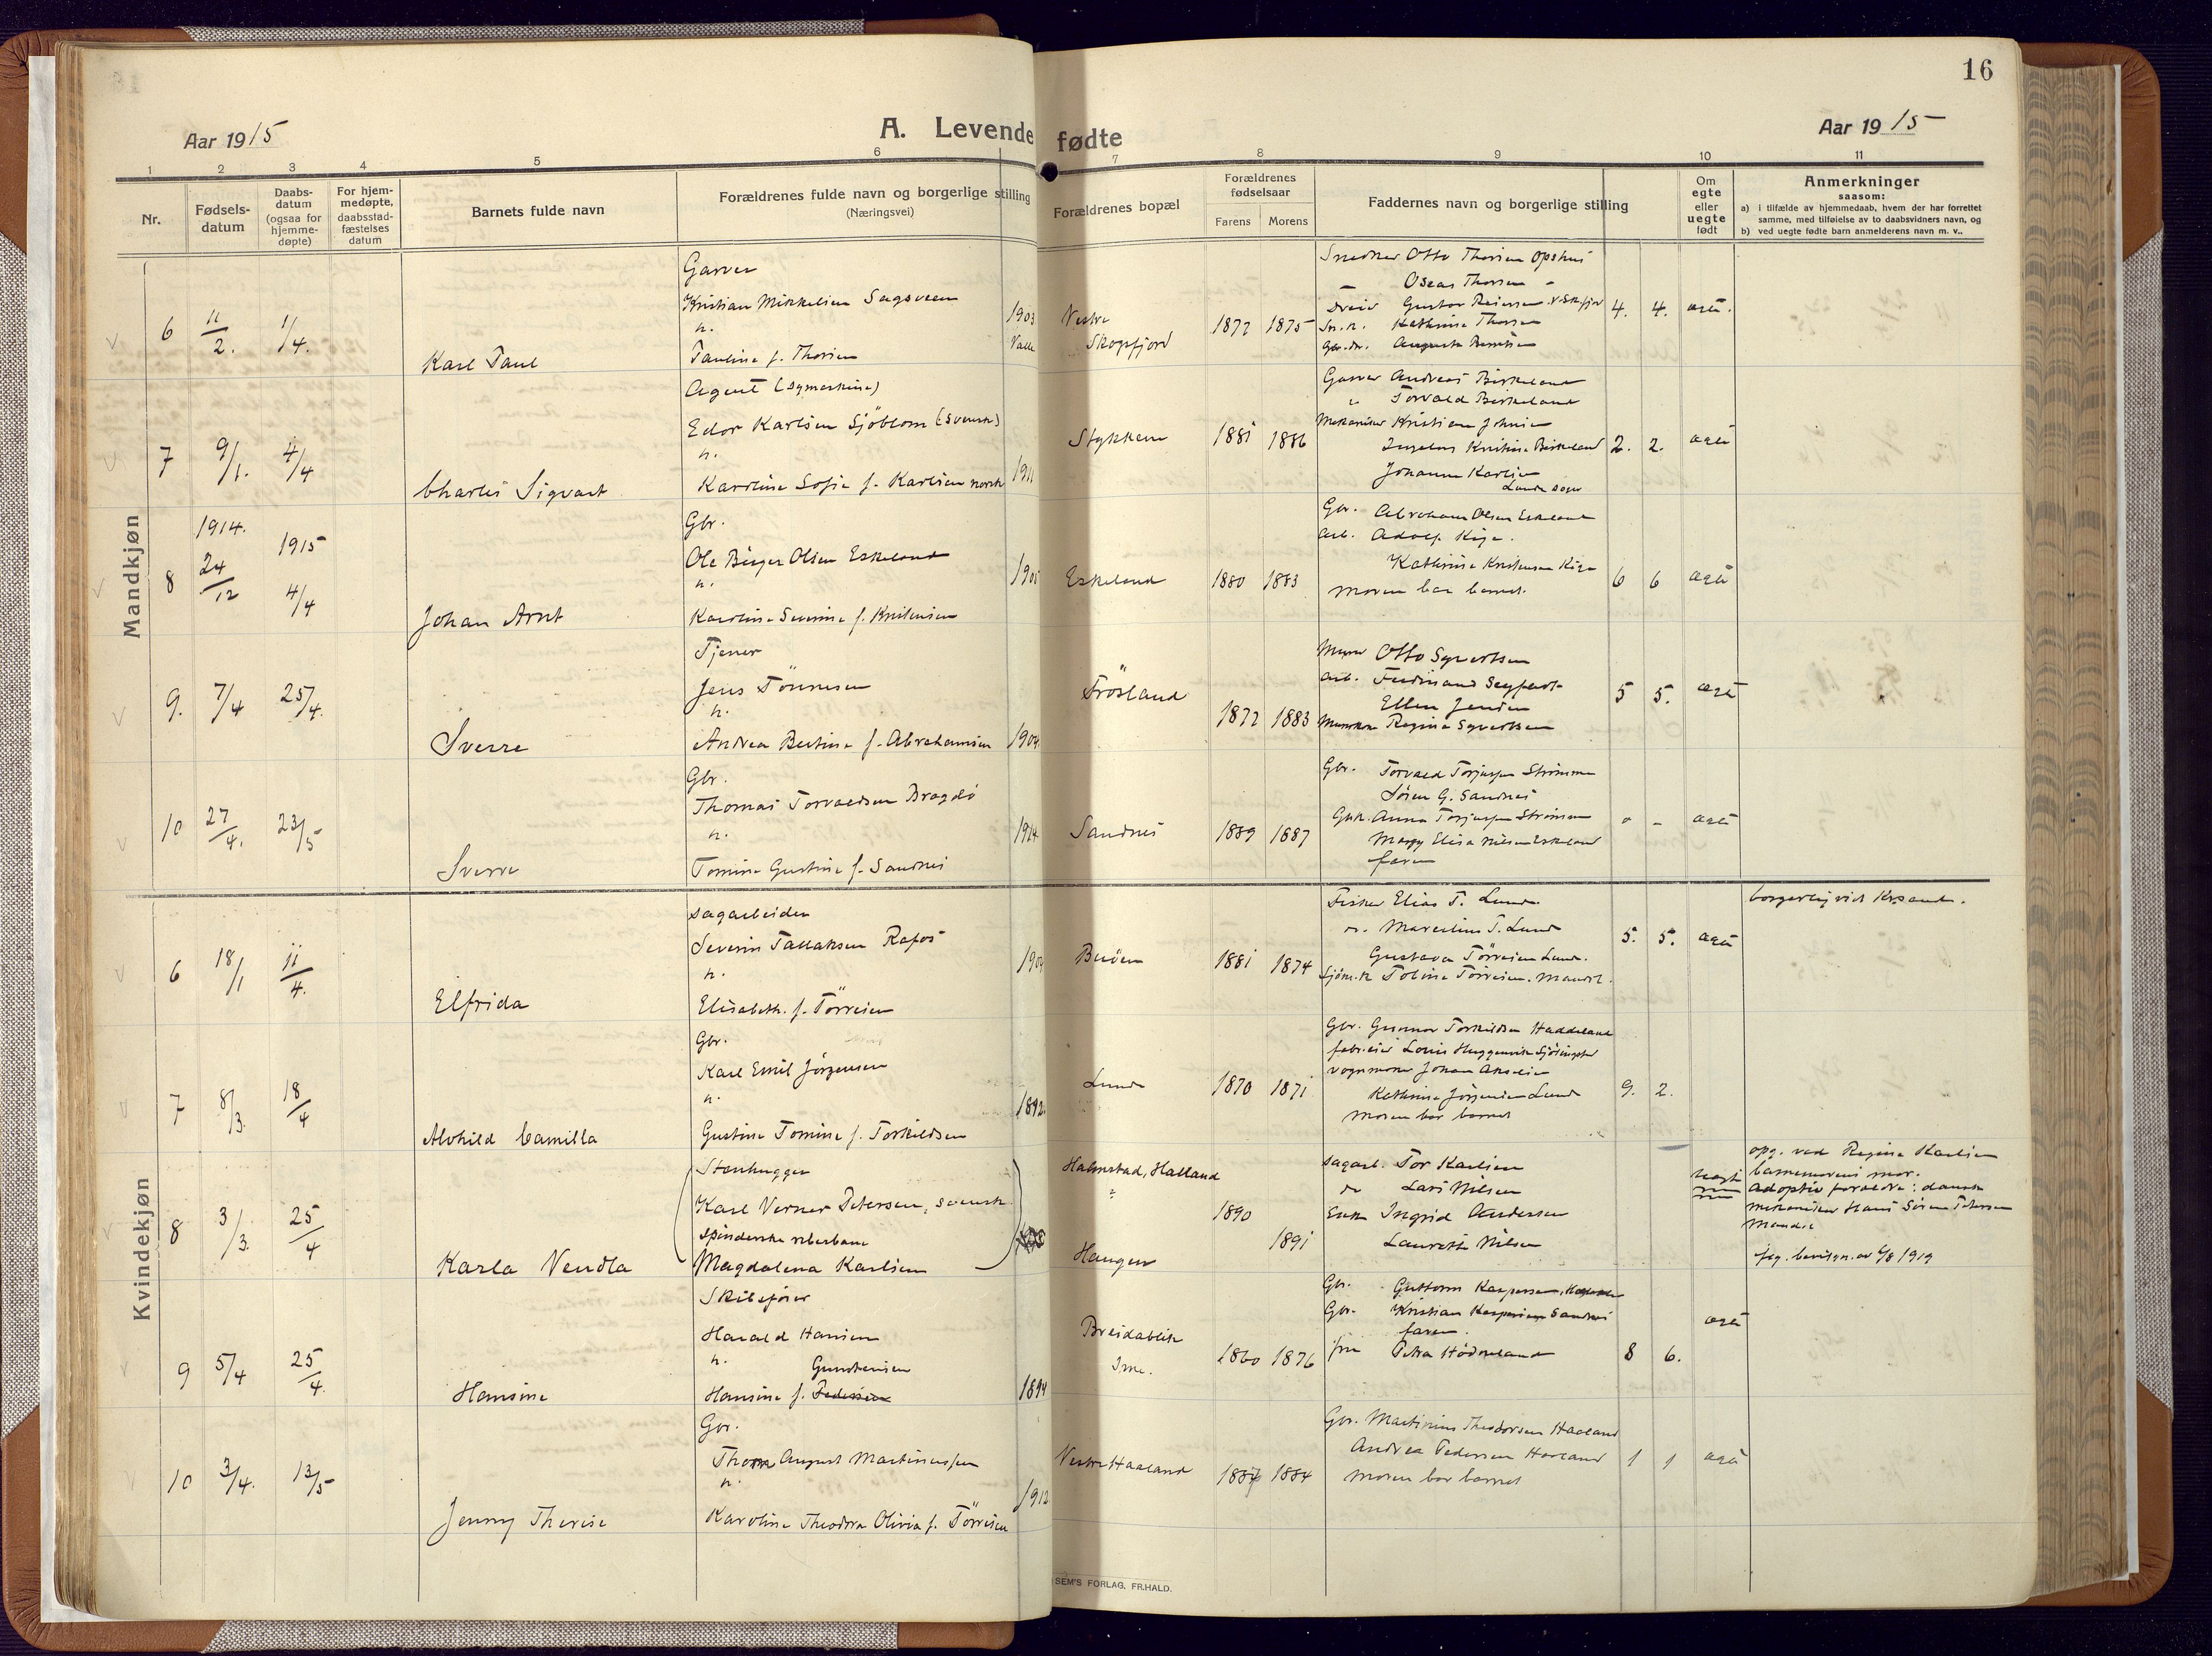 16
Aar 1915
A. Levende fødte
Aar 1915
1 2 3 4 5 6 7 8 9 10 11
Nr.
Fødsels-
datum
Daabs-
datum
(ogsaa for
hjemme-
døpte)
For hjem-
medøpte,
daabsstad-
fæstelses
datum
Barnets fulde navn
Forældrenes fulde navn og borgerlige stilling
(Næringsvei)
Forældrenes bopæl
Forældrenes
fødselsaar
Farens Morens
Faddernes navn og borgerlige stilling
Om
egte
eller
uegte
født
Anmerkninger
saasom:
a) i tilfælde av hjemmedaab, hvem der har forrettet
samme, med tilføielse av to daabsvidners navn, og
b) ved uegte fødte barn anmelderens navn m. v..
Mandkjøn
6 11/2. 1/4. Karl Paul
Garver
Kristian Mikkelsen Sagsveen
h.
Pauline f. Thorsen
1903
Valle
Vestre
Skogsfjord
1872 1875
Snedker Otto Thorsen Opshus
Oseas Thorsen
Gustav Reiersen V. Skogsfjor
Kathrine Thorsen
4. 4. ægte.
7 9/1. 4/4 Charles Sigvart
Agent (symaskine)
Edor Karlsen Sjöblom (svensk)
h.
Karoline Sofie f. Karlsen norsk
1911
Stykkene
1881 1886
Garver Andreas Birkeland
" Torvald Birkeland
Mekaniker Kristian Johnsen
Ingeborg Kristine Birkeland
Johanne Karlsen
2. 2. ægte
8 1914. 24/12 1915 4/4 Johan Arnt
Gbr.
Ole Birger Olsen Eskeland
h.
Karoline Severine f. Kristensen
Eskeland
1880 1883
Gbr. Abraham Olsen Eskeland
arb. Adolf Kige.
Kathrine Kristensen Kige
moren bar barnet.
6 6 ægte
9. 7/4 25/4. Sverre
Tjener
Jens Tönnesen
h.
Andrea Bertine f. Abrahamsen
1904
Frösland
1872 1883
Murer Otto Syvertsen
arb. Ferdinand
Ellen Jensen
Regine Syvertsen
5 5. ægte
10 27/4. 23/5 Sverre
Gbr.
Thomas Torvaldsen Bragdö
h.
Tomine Gustine f. Sandnes
1914
Sandnes
1889 1887
Gbr. Torvald Torjussen Strömme
Sören G. Sandnes
Gbr.k. Anna Torjussen Strömme
Magy Elise Nilsen Eskeland
faren
ægte
Kvindekjøn
6 18/1 11/4. Elfrida
sagarbeider
Severin Tallaksen Rafos
h.
Elisabeth f. Törresen
Buöen
1881 1874
Fisker Elias T. Lunde.
Marcelius T. Lund
Gustava Törresen Lunde.
Sjöm.k Toline Törresen. Mandal.
5. 5. ægte
borgerlig viet Krsand.
7 8/3. 18/4 Alvhild Camilla
Gbr.
Karl Emil Jörgensen
h.
Gustine Tomine f. Torkildsen
1892.
Lunde
1870 1871
Gbr. Gunnar Torkildsen Haddeland
vognmaker Johan Akselsen
Kathrine Jörgensen Lunde
moren bar barnet
9. 2.
8 3/3. 25/4 Karla Vendla
Stenhugger
Karl Verner Petersen, svensk
Magdalena Karlsen
Halmstad, Halland
Haugen
1890
1891
sagarb. Tor Karlsen
do Lars Nilsen
Enke Ingrid Andersen
Laurette Nilsen
uegte
opg. ved Regine Karlsen
barnemorens mor.
Adoptiv forældre: dansk
mekaniker Hans Sören Petersen
Mandal
jfg. bevilgn. av 6/8 1919
9 5/4 25/4. Hansine
Skibsfører
Harald Hansen
h. Gundersen
Hansine f. Pedersen
1894
Breidablik
Ime.
1860 1876
Gbr. Guttorm Kaspersen,
Gbr. Kristian Kaspersen Sandnes
faren.
fru Petra Hödneland
8 6.
ægte
10 3/4. 13/5 Jenny Therese
Gbr.
Thom August Martinussen
h.
Karoline Theodora Olivia f. Törresen
1912
Vestre Haaland
1887 1884
Gbr. Martinius Theodorsen Haaland
Andrea Pedersen Haaland
moren bar barnet
1 1 ægte
SEM'S FORLAG, FR.HALD.